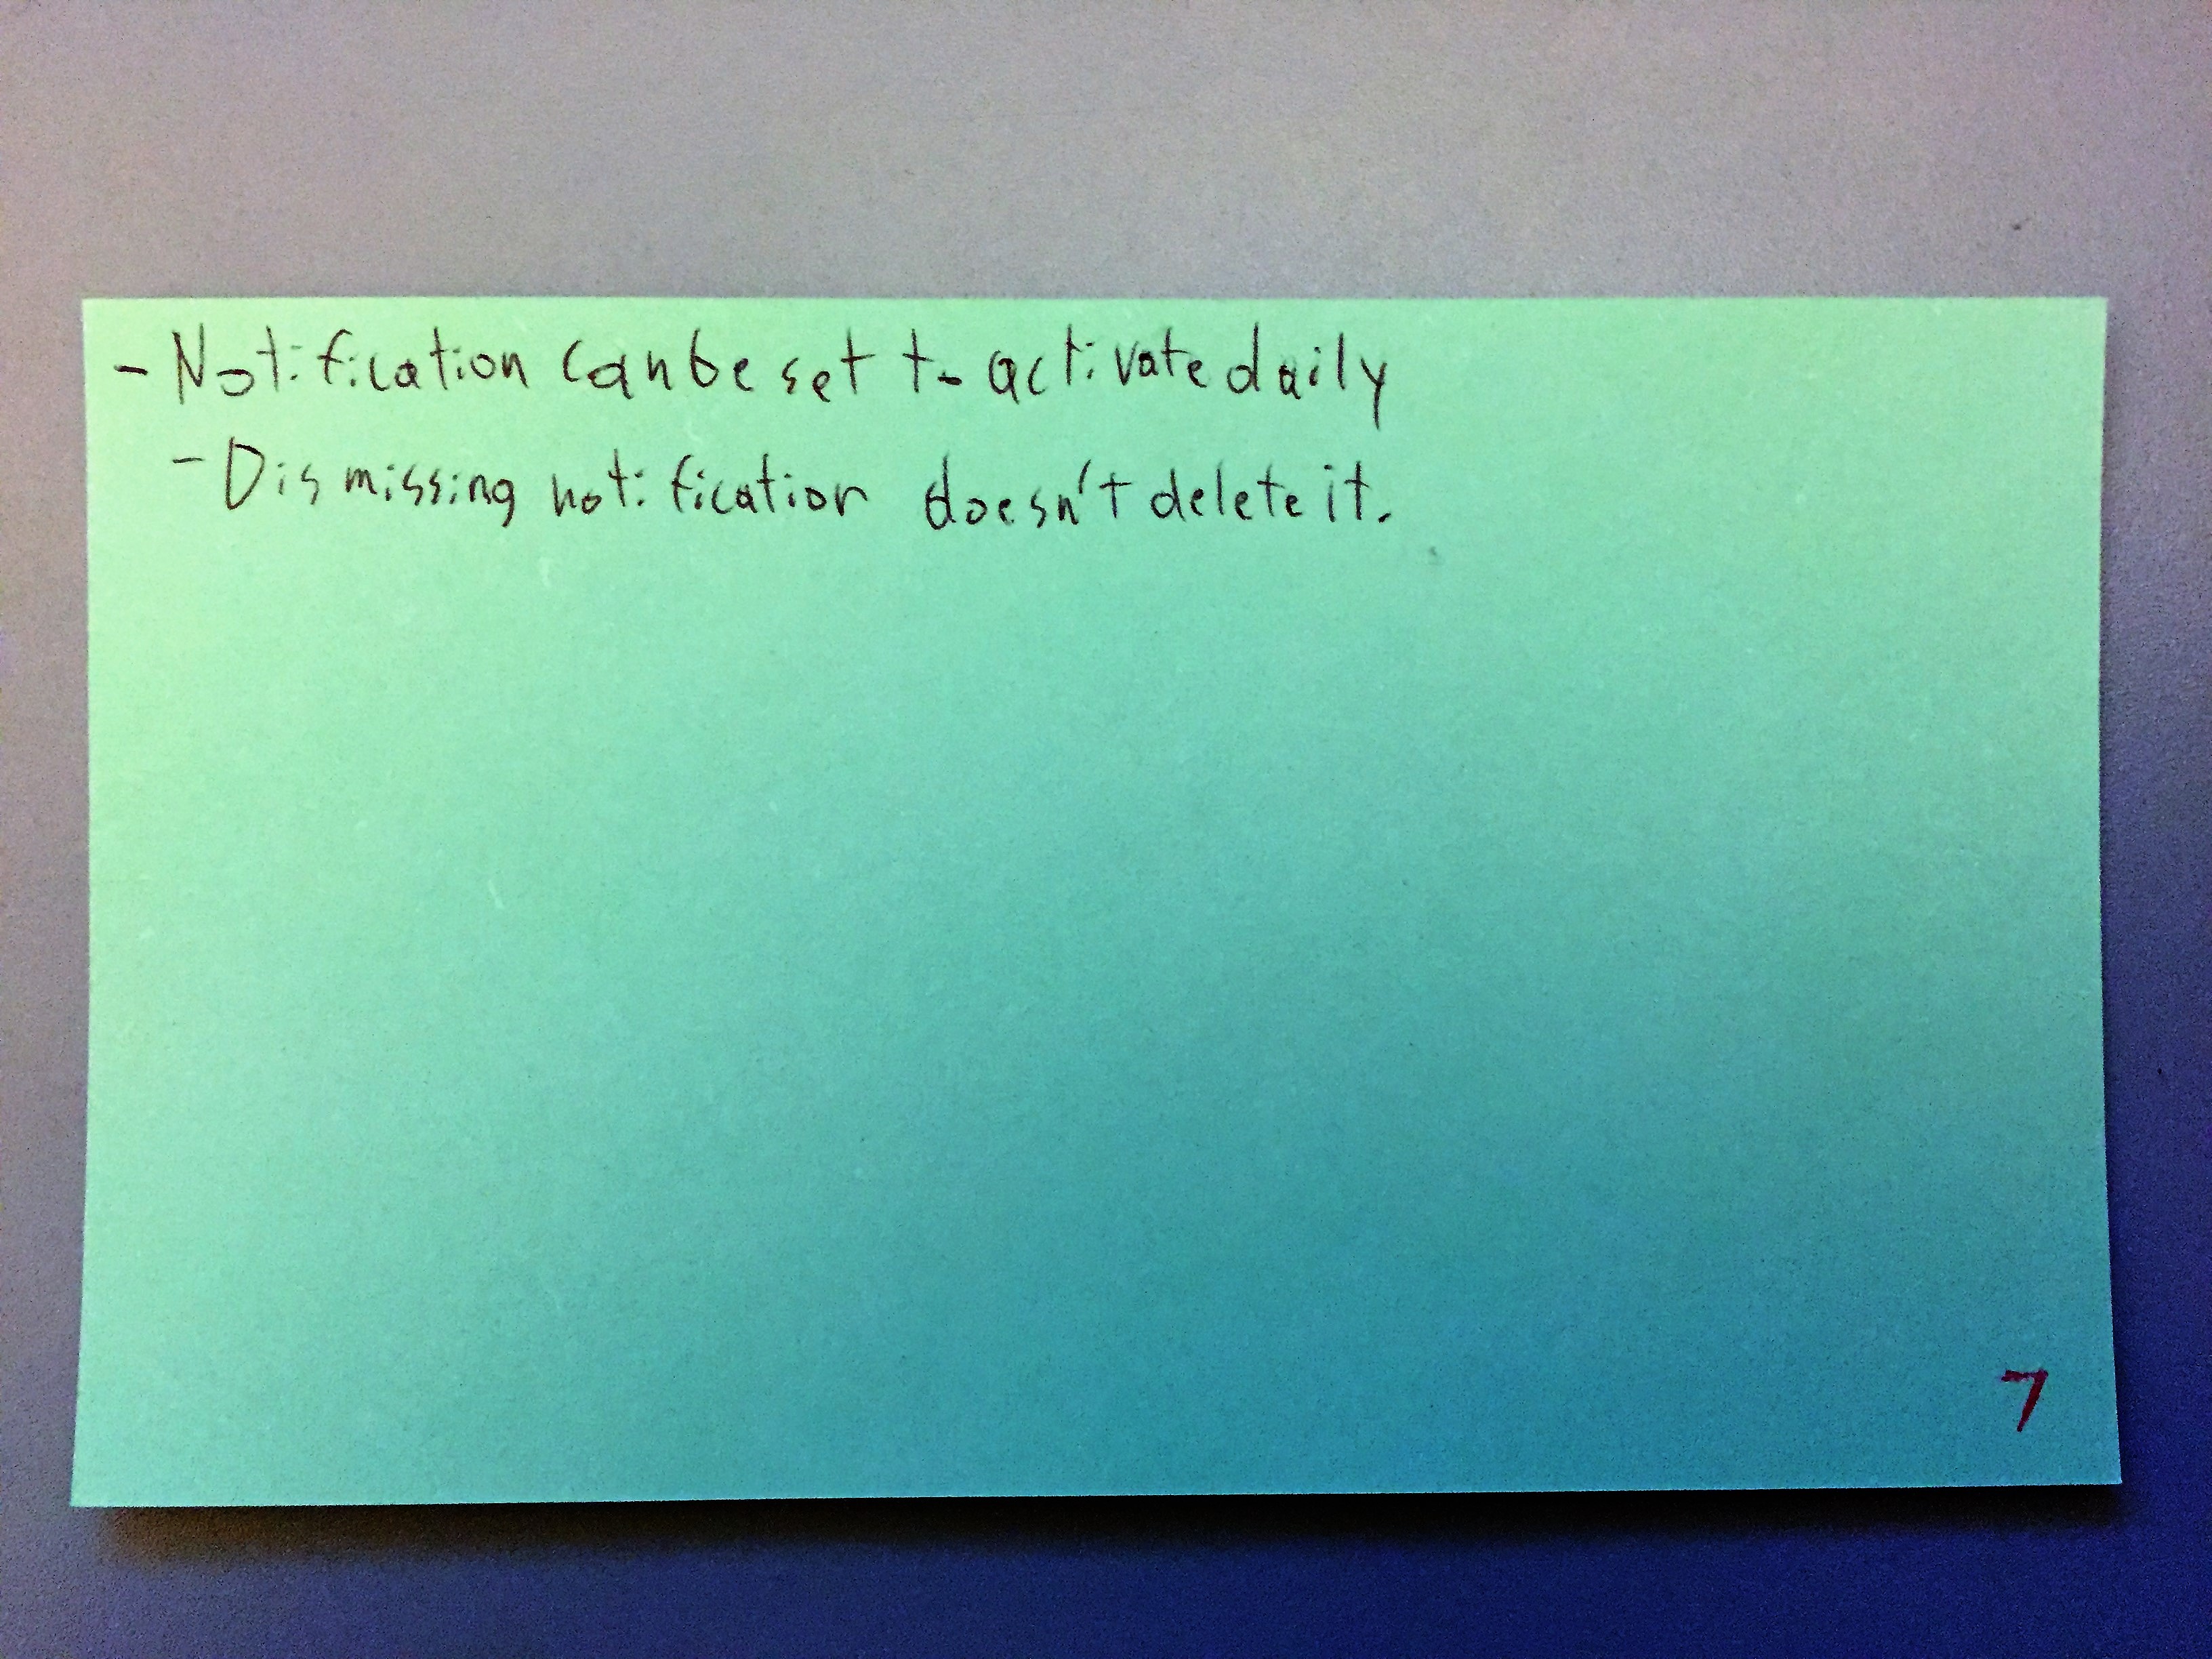 - Notification can be set to activate daily
- Dismissing notification doesn't delete it.
7